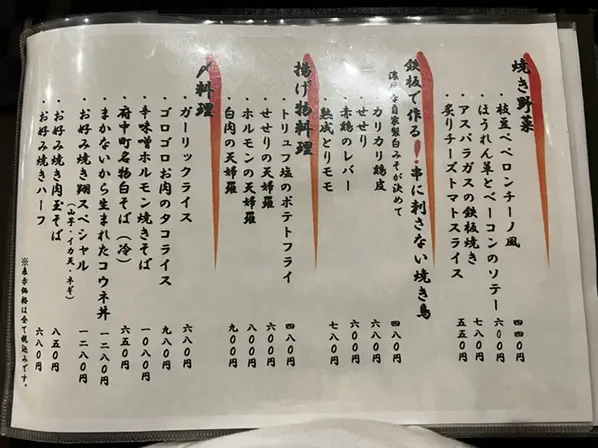 焼き野菜
・枝豆ペペロンチーノ風 四四〇円
・ほうれん草とベーコンのソテー 六〇〇円
・アスパラガスの鉄板焼き 七八〇円
・炙りチーズトマトスライス 五五〇円
鉄板で作る!串に刺さない焼き鳥
濃厚な自家製白みそが決めて
・カリカリ鶏皮 四八〇円
・せせり 六八〇円
・赤鶏のレバー 六八〇円
・熟成とりモモ 七八〇円
揚げ物料理
・トリュフ塩のポテトフライ 四八〇円
・せせりの天婦羅 六〇〇円
・ホルモンの天婦羅 八〇〇円
・白肉の天婦羅 九〇〇円
〆料理
・ガーリックライス 六八〇円
・ゴロゴロお肉のタコライス 九八〇円
・辛味噌ホルモン焼きそば 一〇八〇円
・府中町名物白そば(冷) 六五〇円
・まかないから生まれたコウネ丼 一二八〇円
・お好み焼き翔スペシャル 一二八〇円
(山芋・イカ天・ネギ)
・お好み焼き肉玉そば 八五〇円
・お好み焼きハーフ 六八〇円
※表示価格は全て税込みです。